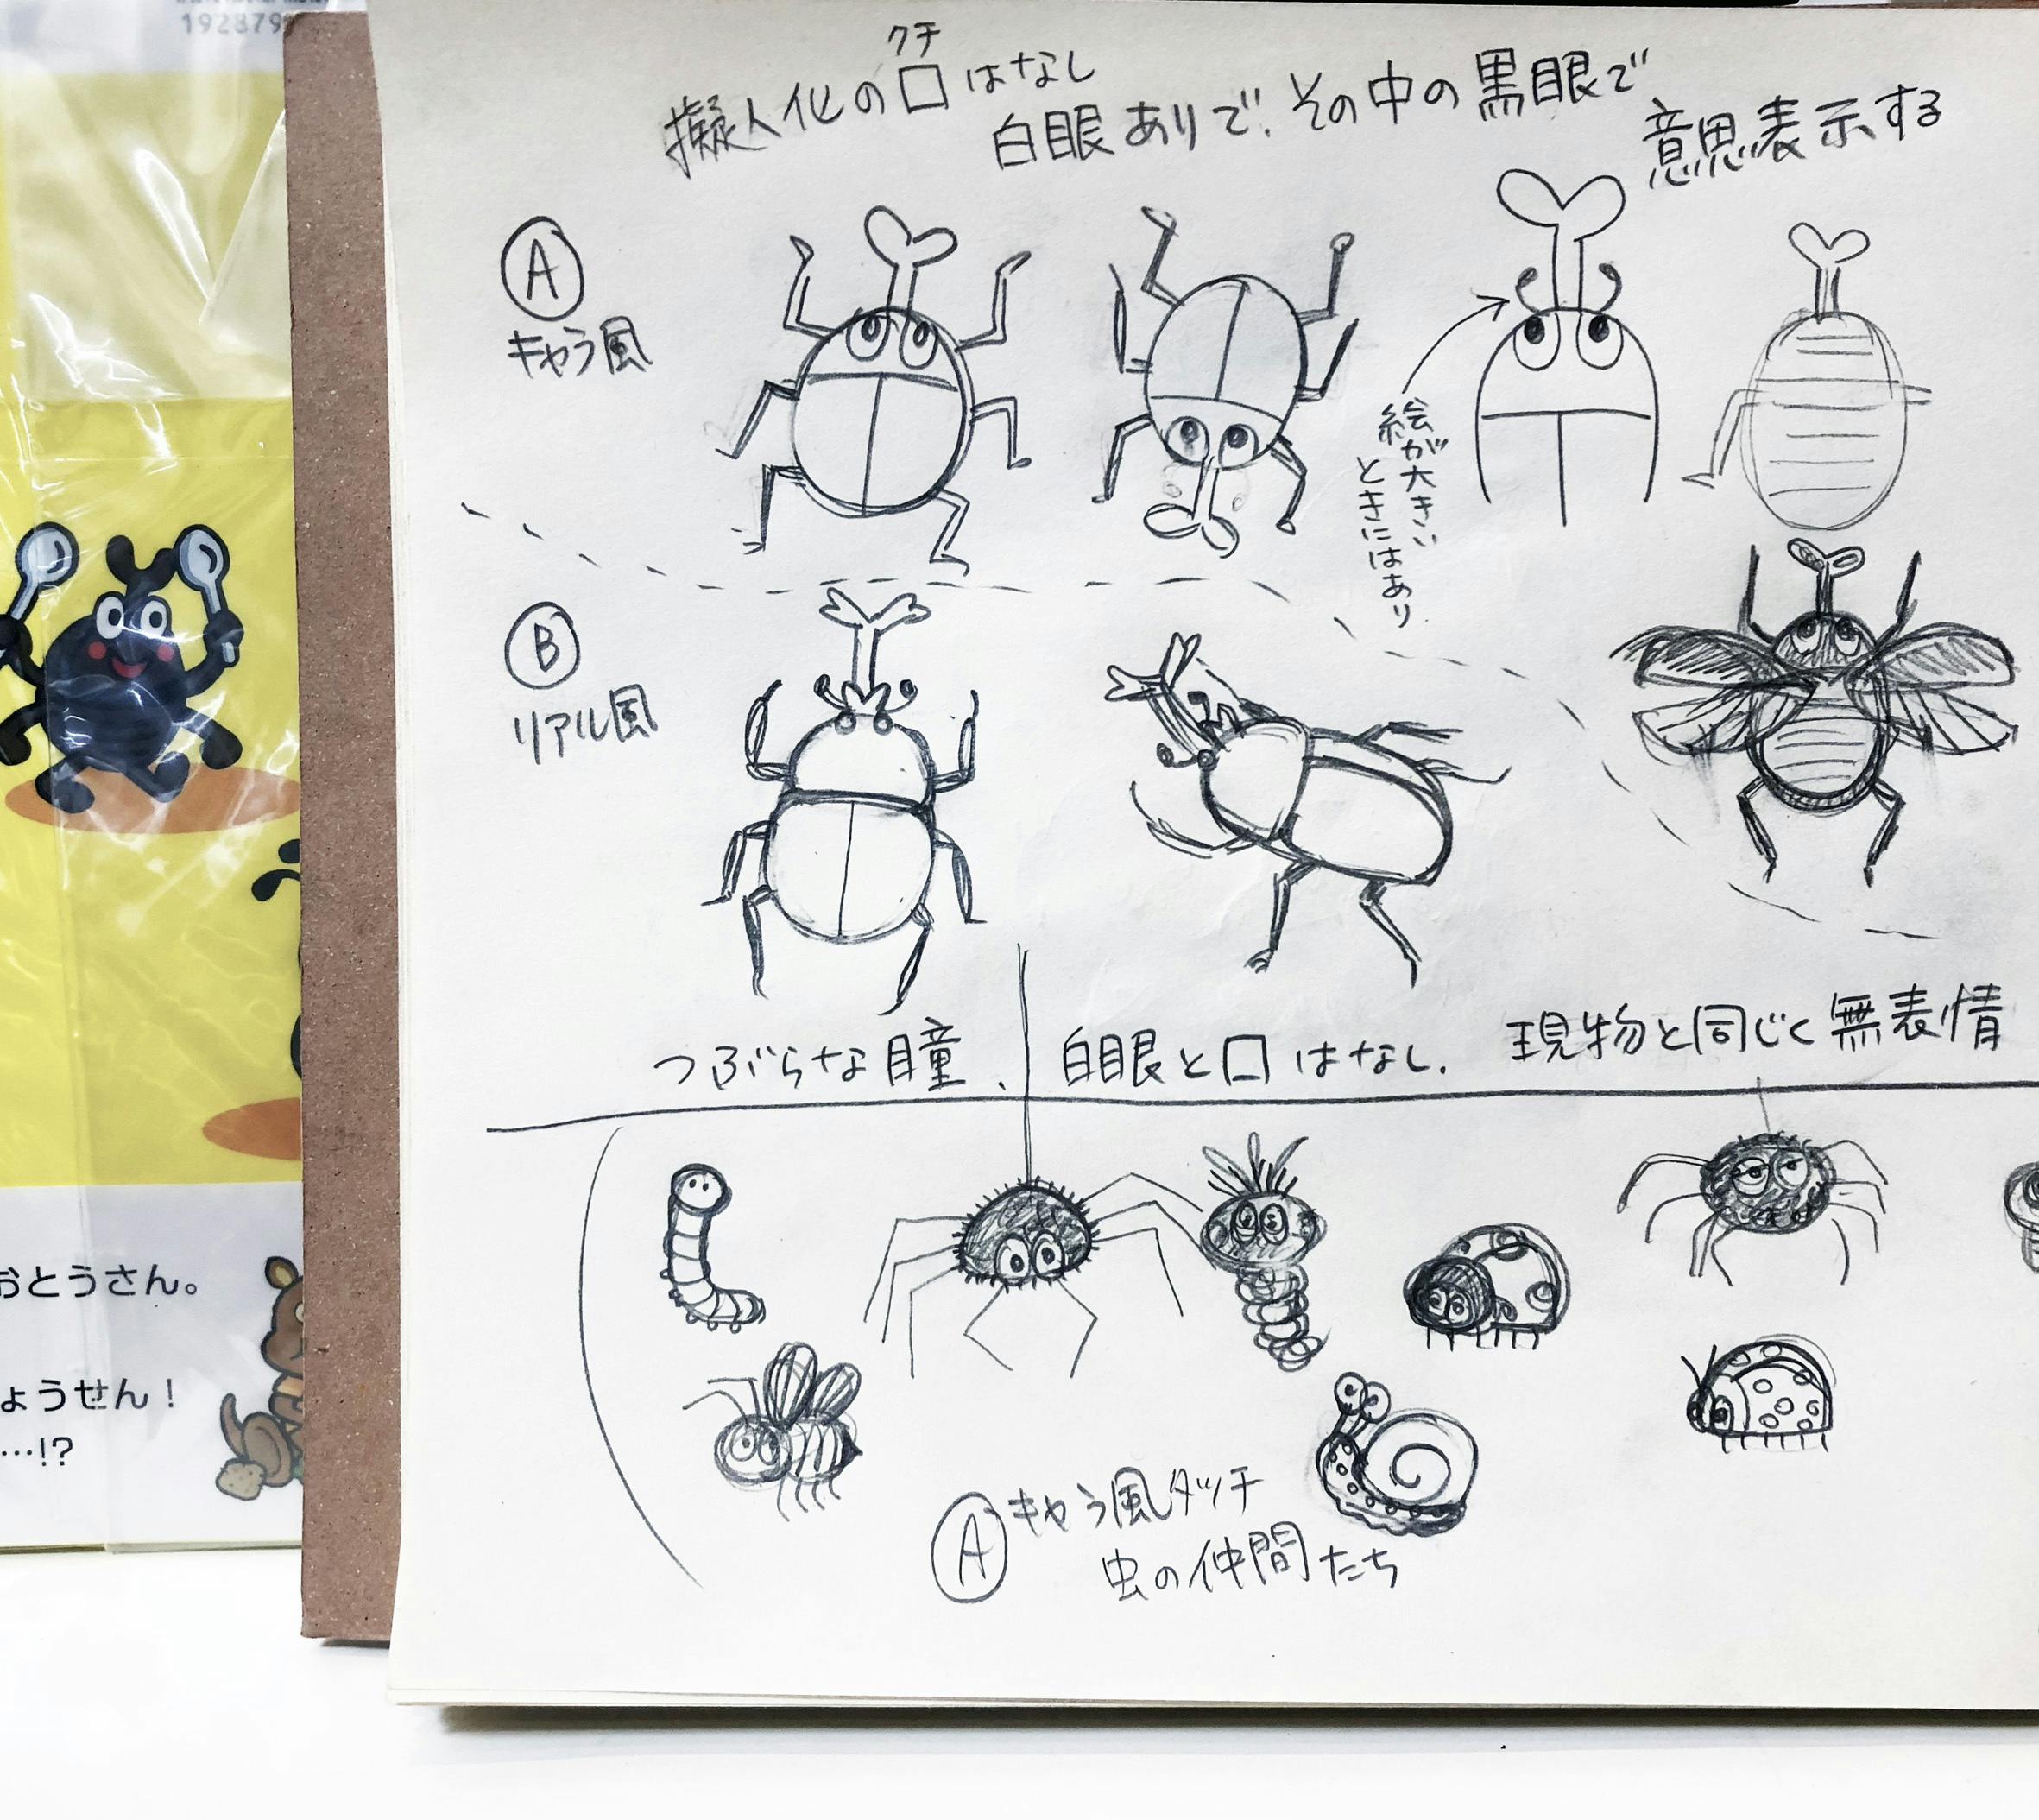 192879
クチ
擬人化の口はなし
白眼ありで、その中の黒眼で
意思表示する
A
キャラ風
絵が大きい
ときにはあり
B
リアル風
つぶらな瞳、白眼と口はなし、現物と同じく無表情
A キャラ風タッチ
虫の仲間たち
おとうさん。
ょうせん！
…!?